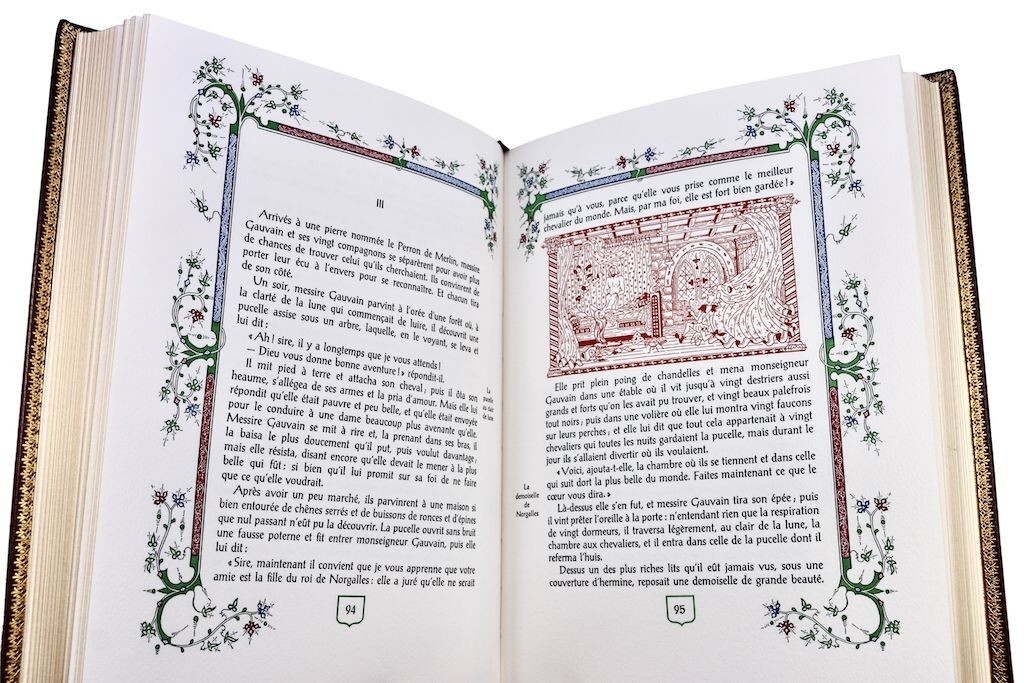 III
Arrivés à une pierre nommée le Perron de Merlin, messire
Gauvain et ses vingt compagnons se séparèrent pour avoir plus
de chances de trouver celui qu'ils cherchaient. Ils convinrent de
porter leur écu à l'envers pour se reconnaître. Et chacun tira
de son côté.
Un soir, messire Gauvain parvint à l'orée d'une forêt où, à
la clarté de la lune qui commençait de luire, il découvrit une
pucelle assise sous un arbre, laquelle, en le voyant, se leva et
lui dit :
« Ah ! sire, il y a longtemps que je vous attends !
— Dieu vous donne bonne aventure ! » répondit-il.
Il mit pied à terre et attacha son cheval ; puis il ôta son
heaume, s'allégea de ses armes et la pria d'amour. Mais elle lui
répondit qu'elle était pauvre et peu belle, et qu'elle était envoyée
pour le conduire à une dame beaucoup plus avenante qu'elle.
Messire Gauvain se mit à rire et, la prenant dans ses bras, il
la baisa le plus doucement qu'il put, puis voulut davantage ;
mais elle résista, disant encore qu'elle devait le mener à la plus
belle qui fût : si bien qu'il lui promit sur sa foi de ne faire
que ce qu'elle voudrait.
Après avoir un peu marché, ils parvinrent à une maison si
bien entourée de chênes serrés et de buissons de ronces et d'épines
que nul passant n'eût pu la découvrir. La pucelle ouvrit sans bruit
une fausse poterne et fit entrer monseigneur Gauvain, puis elle
lui dit :
« Sire, maintenant il convient que je vous apprenne que votre
amie est la fille du roi de Norgalles : elle a juré qu'elle ne serait
La
pucelle
au clair
de lune
94
jamais qu'à vous, parce qu'elle vous prise comme le meilleur
chevalier du monde. Mais, par ma foi, elle est fort bien gardée ! »
Elle prit plein poing de chandelles et mena monseigneur
Gauvain dans une étable où il vit jusqu'à vingt destriers aussi
grands et forts qu'on les avait pu trouver, et vingt beaux palefrois
tout noirs ; puis dans une volière où elle lui montra vingt faucons
sur leurs perches ; et elle lui dit que tout cela appartenait à vingt
chevaliers qui toutes les nuits gardaient la pucelle, mais durant le
jour ils s'allaient divertir où ils voulaient.
« Voici, ajouta-t-elle, la chambre où ils se tiennent et dans celle
qui suit dort la plus belle du monde. Faites maintenant ce que le
cœur vous dira. »
Là-dessus elle s'en fut, et messire Gauvain tira son épée ; puis
il vint prêter l'oreille à la porte : n'entendant rien que la respiration
de vingt dormeurs, il traversa légèrement, au clair de la lune, la
chambre aux chevaliers, et il entra dans celle de la pucelle dont il
referma l'huis.
Dessus un des plus riches lits qu'il eût jamais vus, sous une
couverture d'hermine, reposait une demoiselle de grande beauté.
La
demoiselle
de
Norgalles
95